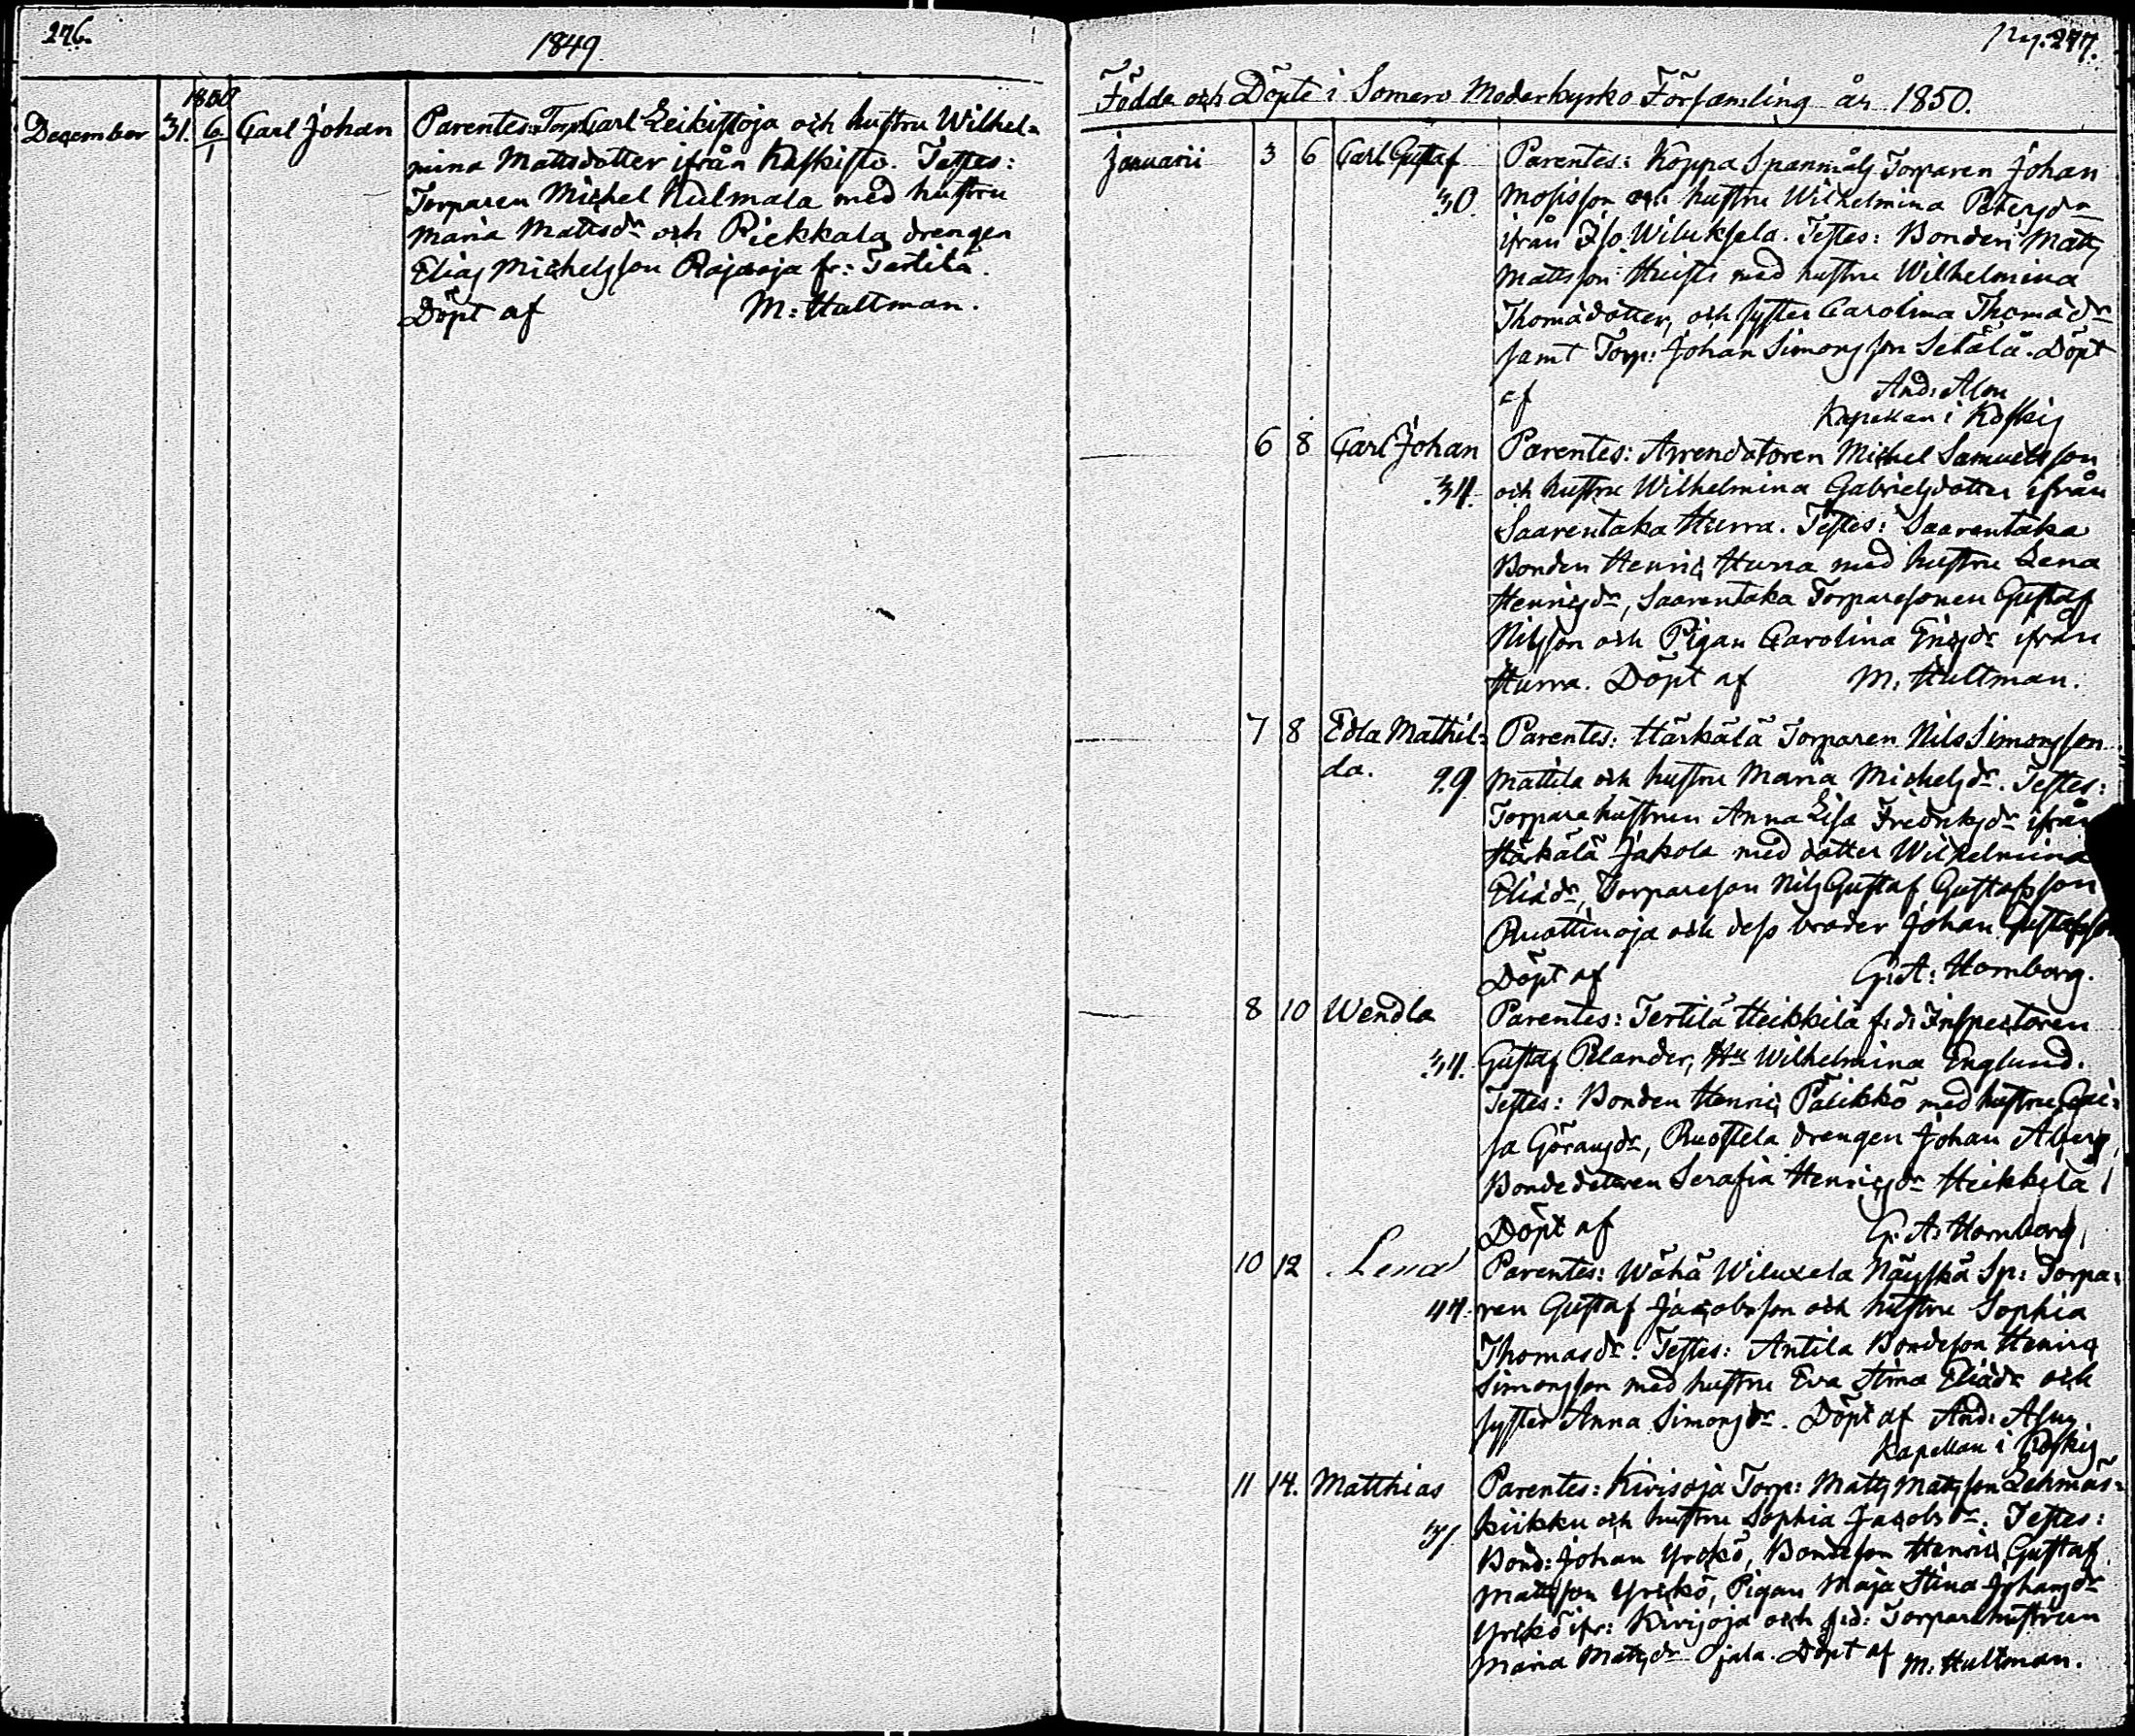 276.
1849
1850
December 31. 6/1 Carl Johan Parentes: Torp: Carl Leikistoja och hustru Wilhel=
mina Mattsdotter ifrån Kaskisto. Testes:
Torparen Michel Kulmala med hustru
Maria Mattsdr och Pickkala drengen
Elias Michelsson Rajaoja fr: Terttilä.
Döpt af M: Hultman.
Pag. 277.
Födde och Döpte i Somero Moderkyrko Församling år 1850.
Januarii 3 6 Carl Gustaf Parentes: Koppa Spanmåls Torparen Johan
30. Mosisson och hustru Wilhelmina Petersdr
ifrån Iso Wiluksela. Testes: Bonden Matts
Mattsson med hustru Wilhelmina
Thomadotter, och syster Carolina Thomadr
samt Torp: Johan Simonsson Setälä. Döpt
af And: Alen
Kapellan i Koskis
6 8 Carl Johan Parentes: Arrendatoren Michel Samuelsson
34. och hustru Wilhelmina Gabrielsdotter ifrån
Saarentaka Hurra. Testes: Saarentaka
Bonden Henric Hurra med hustru Lena
Henricsdr, Saarentaka Torparesonen Gustaf
Nilsson och Pigan Carolina Ericsdr ifrån
Hurra. Döpt af M. Hultman.
7 8 Edla Mathil= Parentes: Härkälä Torparen Nils Simonsson
da. 29. Mattila och hustru Maria Michelsdr. Testes:
Torparehustrun Anna Lisa Fredriksdr ifrån
Härkälä Jakola med dotter Wilhelmina
Eliaedr, Torpareson Nils Gustaf Gustafsson
Ruottinoja och dess broder Johan Gustafsson
Döpt af G: A: Hornborg.
8 10 Wendla Parentes: Terttilä Heikkilä f: d: Inspectoren
34. Gustaf Pelander, Hu Wilhelmina Englund.
Testes: Bonden Henric Pälikkö med hustru Cai=
sa Göransdr, Ruostela drengen Johan Aberg,
Bondedotteren Serafia Henricsdr Heikkilä
Döpt af G: A: Hornborg.
10 12 Lena Parentes: Wähä Wiluxela Näyskä Sp: Torpa=
47. ren Gustaf Jacobsson och hustru Sophia
Thomasdr. Testes: Antila Bondeson Henric
Simonsson med hustru Eva Stina Eliaedr och
syster Anna Simonsdr. Döpt af And: Alen.
Kapellan i Koskis
11 14. Matthias Parentes: Kivisoja Torp: Matts Mattsson Lehmäs=
31 kiikku och hustru Sophia Jacobsdr. Testes:
Bond: Johan Yrckö, Bondeson Henric Gustaf
Mattsson Yrckö, Pigan Maja Stina Johansdr
Yrckö ifr: Kivisoja och f: d: Torparehustrun
Maria Mattsdr Ojala. Döpt af M: Hultman.